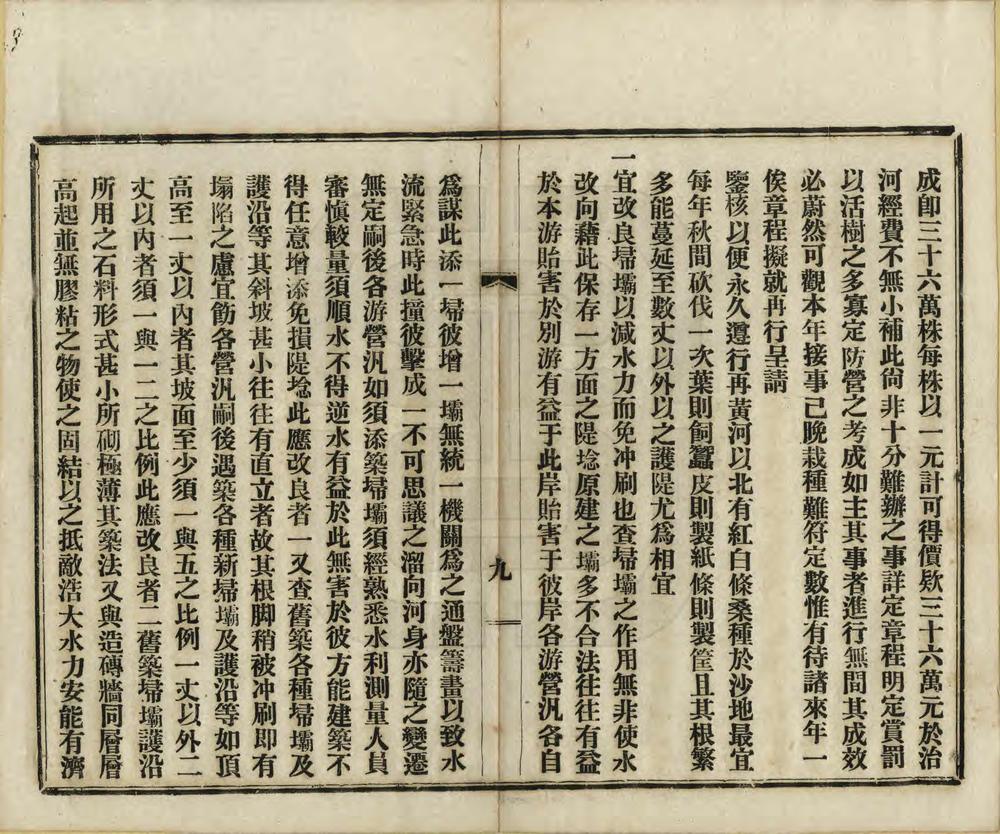 成卽三十六萬株每株以一元計可得價欵三十六萬元於治
河經費不無小補此尙非十分難辦之事詳定章程明定賞罰
以活樹之多寡定防營之考成如主其事者進行無間其成效
必蔚然可觀本年接事已晚栽種難符定數惟有待諸來年一
俟章程擬就再行呈請
鑒核以便永久遵行再黃河以北有紅白條桑種於沙地最宜
每年秋間砍伐一次葉則飼蠶皮則製紙條則製筐且其根繁
多能蔓延至數丈以外以之護隄尤爲相宜
一宜改良埽壩以減水力而免冲刷也查埽壩之作用無非使水
改向藉此保存一方面之隄埝原建之壩多不合法往往有益
於本游貽害於別游有益于此岸貽害于彼岸各游營汛各自
九
爲謀此添一埽彼增一壩無統一機關爲之通盤籌畫以致水
流緊急時此撞彼擊成一不可思議之溜向河身亦隨之變遷
無定嗣後各游營汛如須添築埽壩須經熟悉水利測量人員
審愼較量須順水不得逆水有益於此無害於彼方能建築不
得任意增添免損隄埝此應改良者一又查舊築各種埽壩及
護沿等其斜坡甚小往往有直立者故其根脚稍被冲刷卽有
塌陷之慮宜飭各營汛嗣後遇築各種新埽壩及護沿等如頂
高至一丈以內者其坡面至少須一與五之比例一丈以外二
丈以內者須一與一二之比例此應改良者二舊築埽壩護沿
所用之石料形式甚小所砌極薄其築法又與造磚牆同層層
高起並無膠粘之物使之固結以之抵敵浩大水力安能有濟